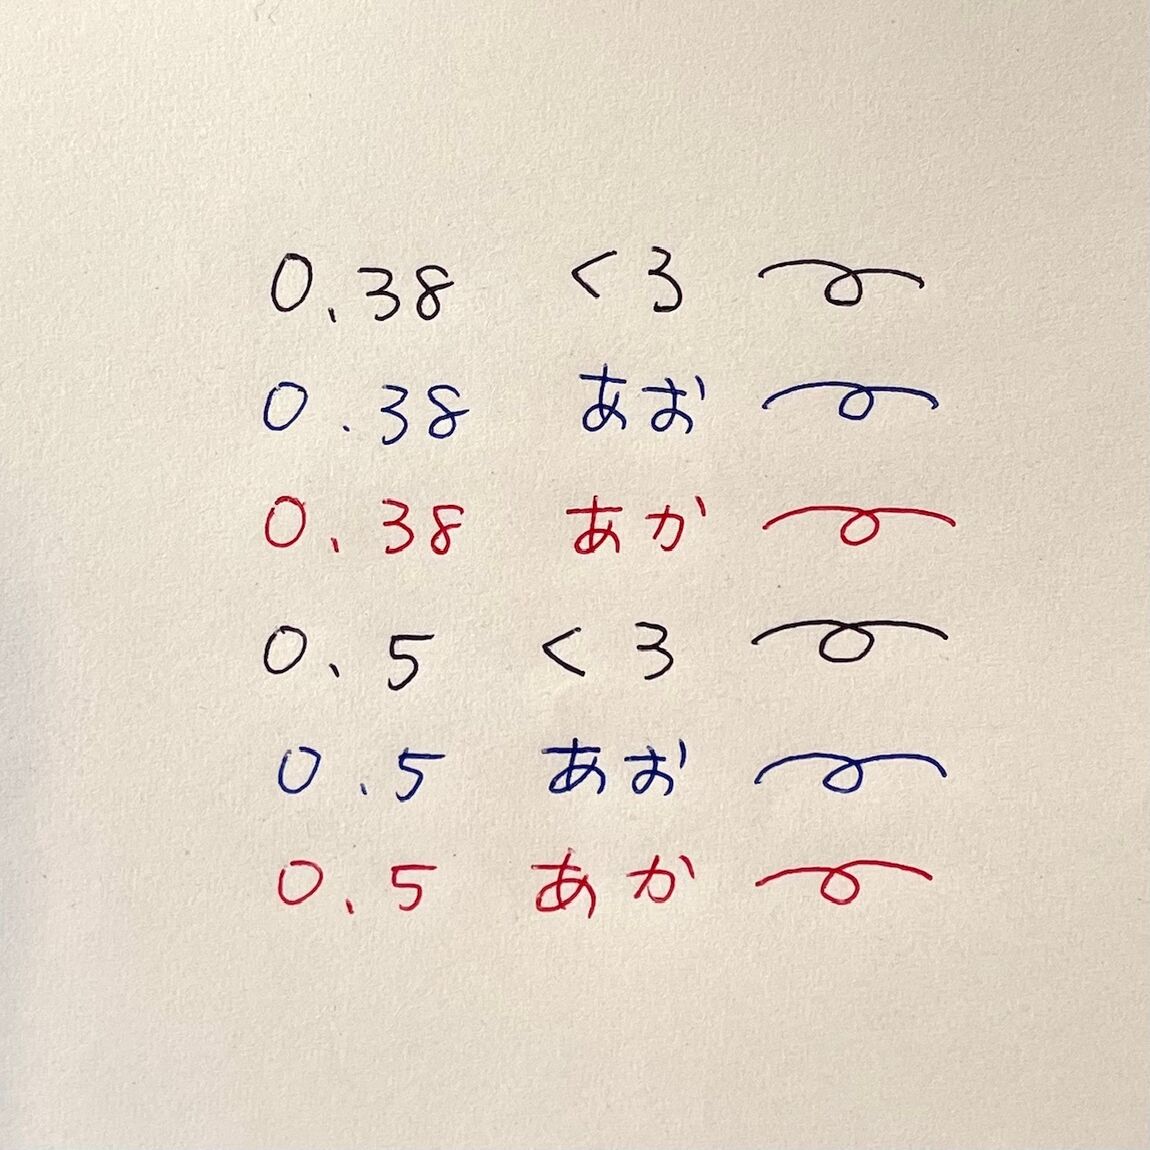 0.38 くろ
0.38 あお
0.38 あか
0.5 くろ
0.5 あお
0.5 あか